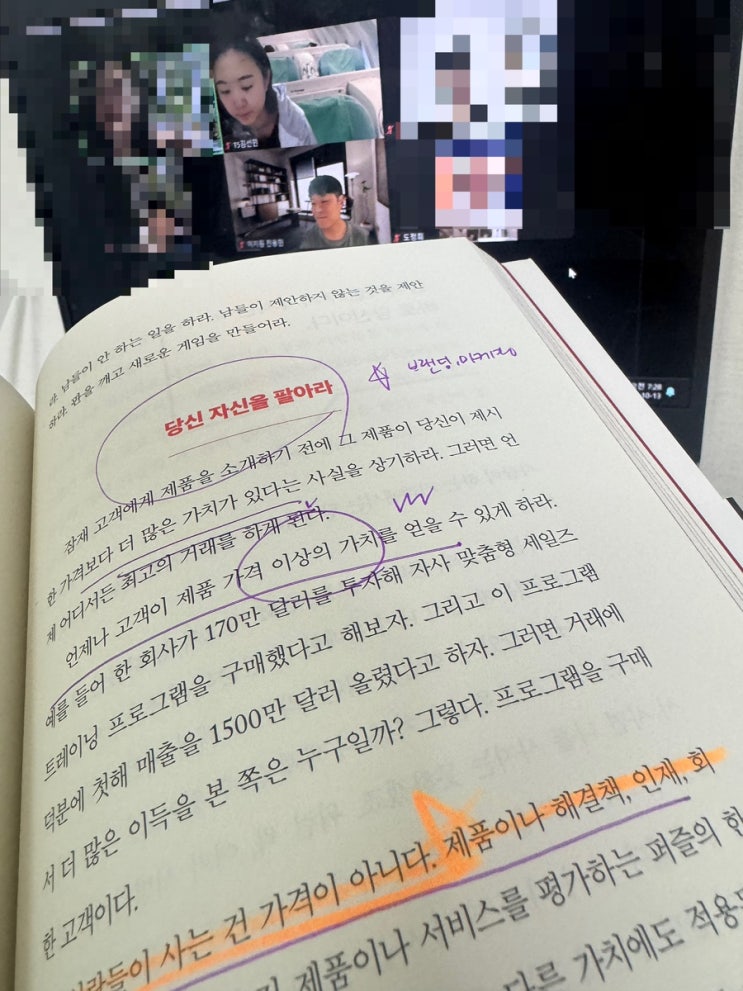 15김선원
이지원 전용민
도정희
전 7:28
10-13
라. 남들이 안 하는 일을 하라. 남들이 제안하지 않는 것을 제안
하라. 판을 깨고 새로운 게임을 만들어라.
당신 자신을 팔아라
브랜딩.
잠재 고객에게 제품을 소개하기 전에 그 제품이 당신이 제시
한 가격보다 더 많은 가치가 있다는 사실을 상기하라. 그러면 언
제 어디서든 최고의 거래를 하게 된다.
언제나 고객이 제품 가격 이상의 가치를 얻을 수 있게 하라.
예를 들어 한 회사가 170만 달러를 투자해 자사 맞춤형 세일즈
트레이닝 프로그램을 구매했다고 해보자. 그리고 이 프로그램
덕분에 첫해 매출을 1500만 달러 올렸다고 하자. 그러면 거래에
서 더 많은 이득을 본 쪽은 누구일까? 그렇다. 프로그램을 구매
한 고객이다.
사람들이 사는 건 가격이 아니다. 제품이나 해결책, 인재, 회
제품이나 서비스를 평가하는 퍼즐의 한
다른 가치에도 적용